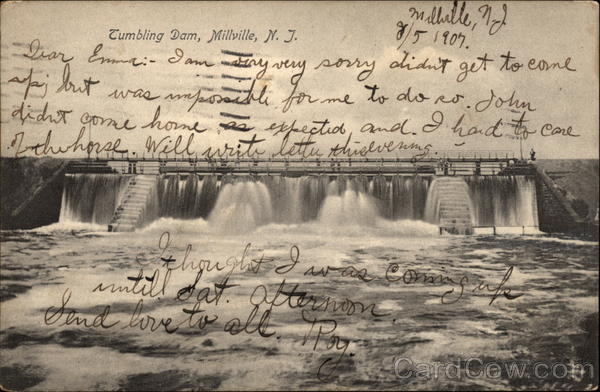 Tumbling Dam, Millville, N. J.
Millville, N.J.
8/5 1907.
Dear Emma:- I am very very sorry didn't get to come
up but was impossible for me to do so. John
didn't come home as expected and I had to care
of the horse. Will write letter this evening.
I thought I was coming up
until Sat. afternoon.
Send love to all. Roy.
CardCow.com